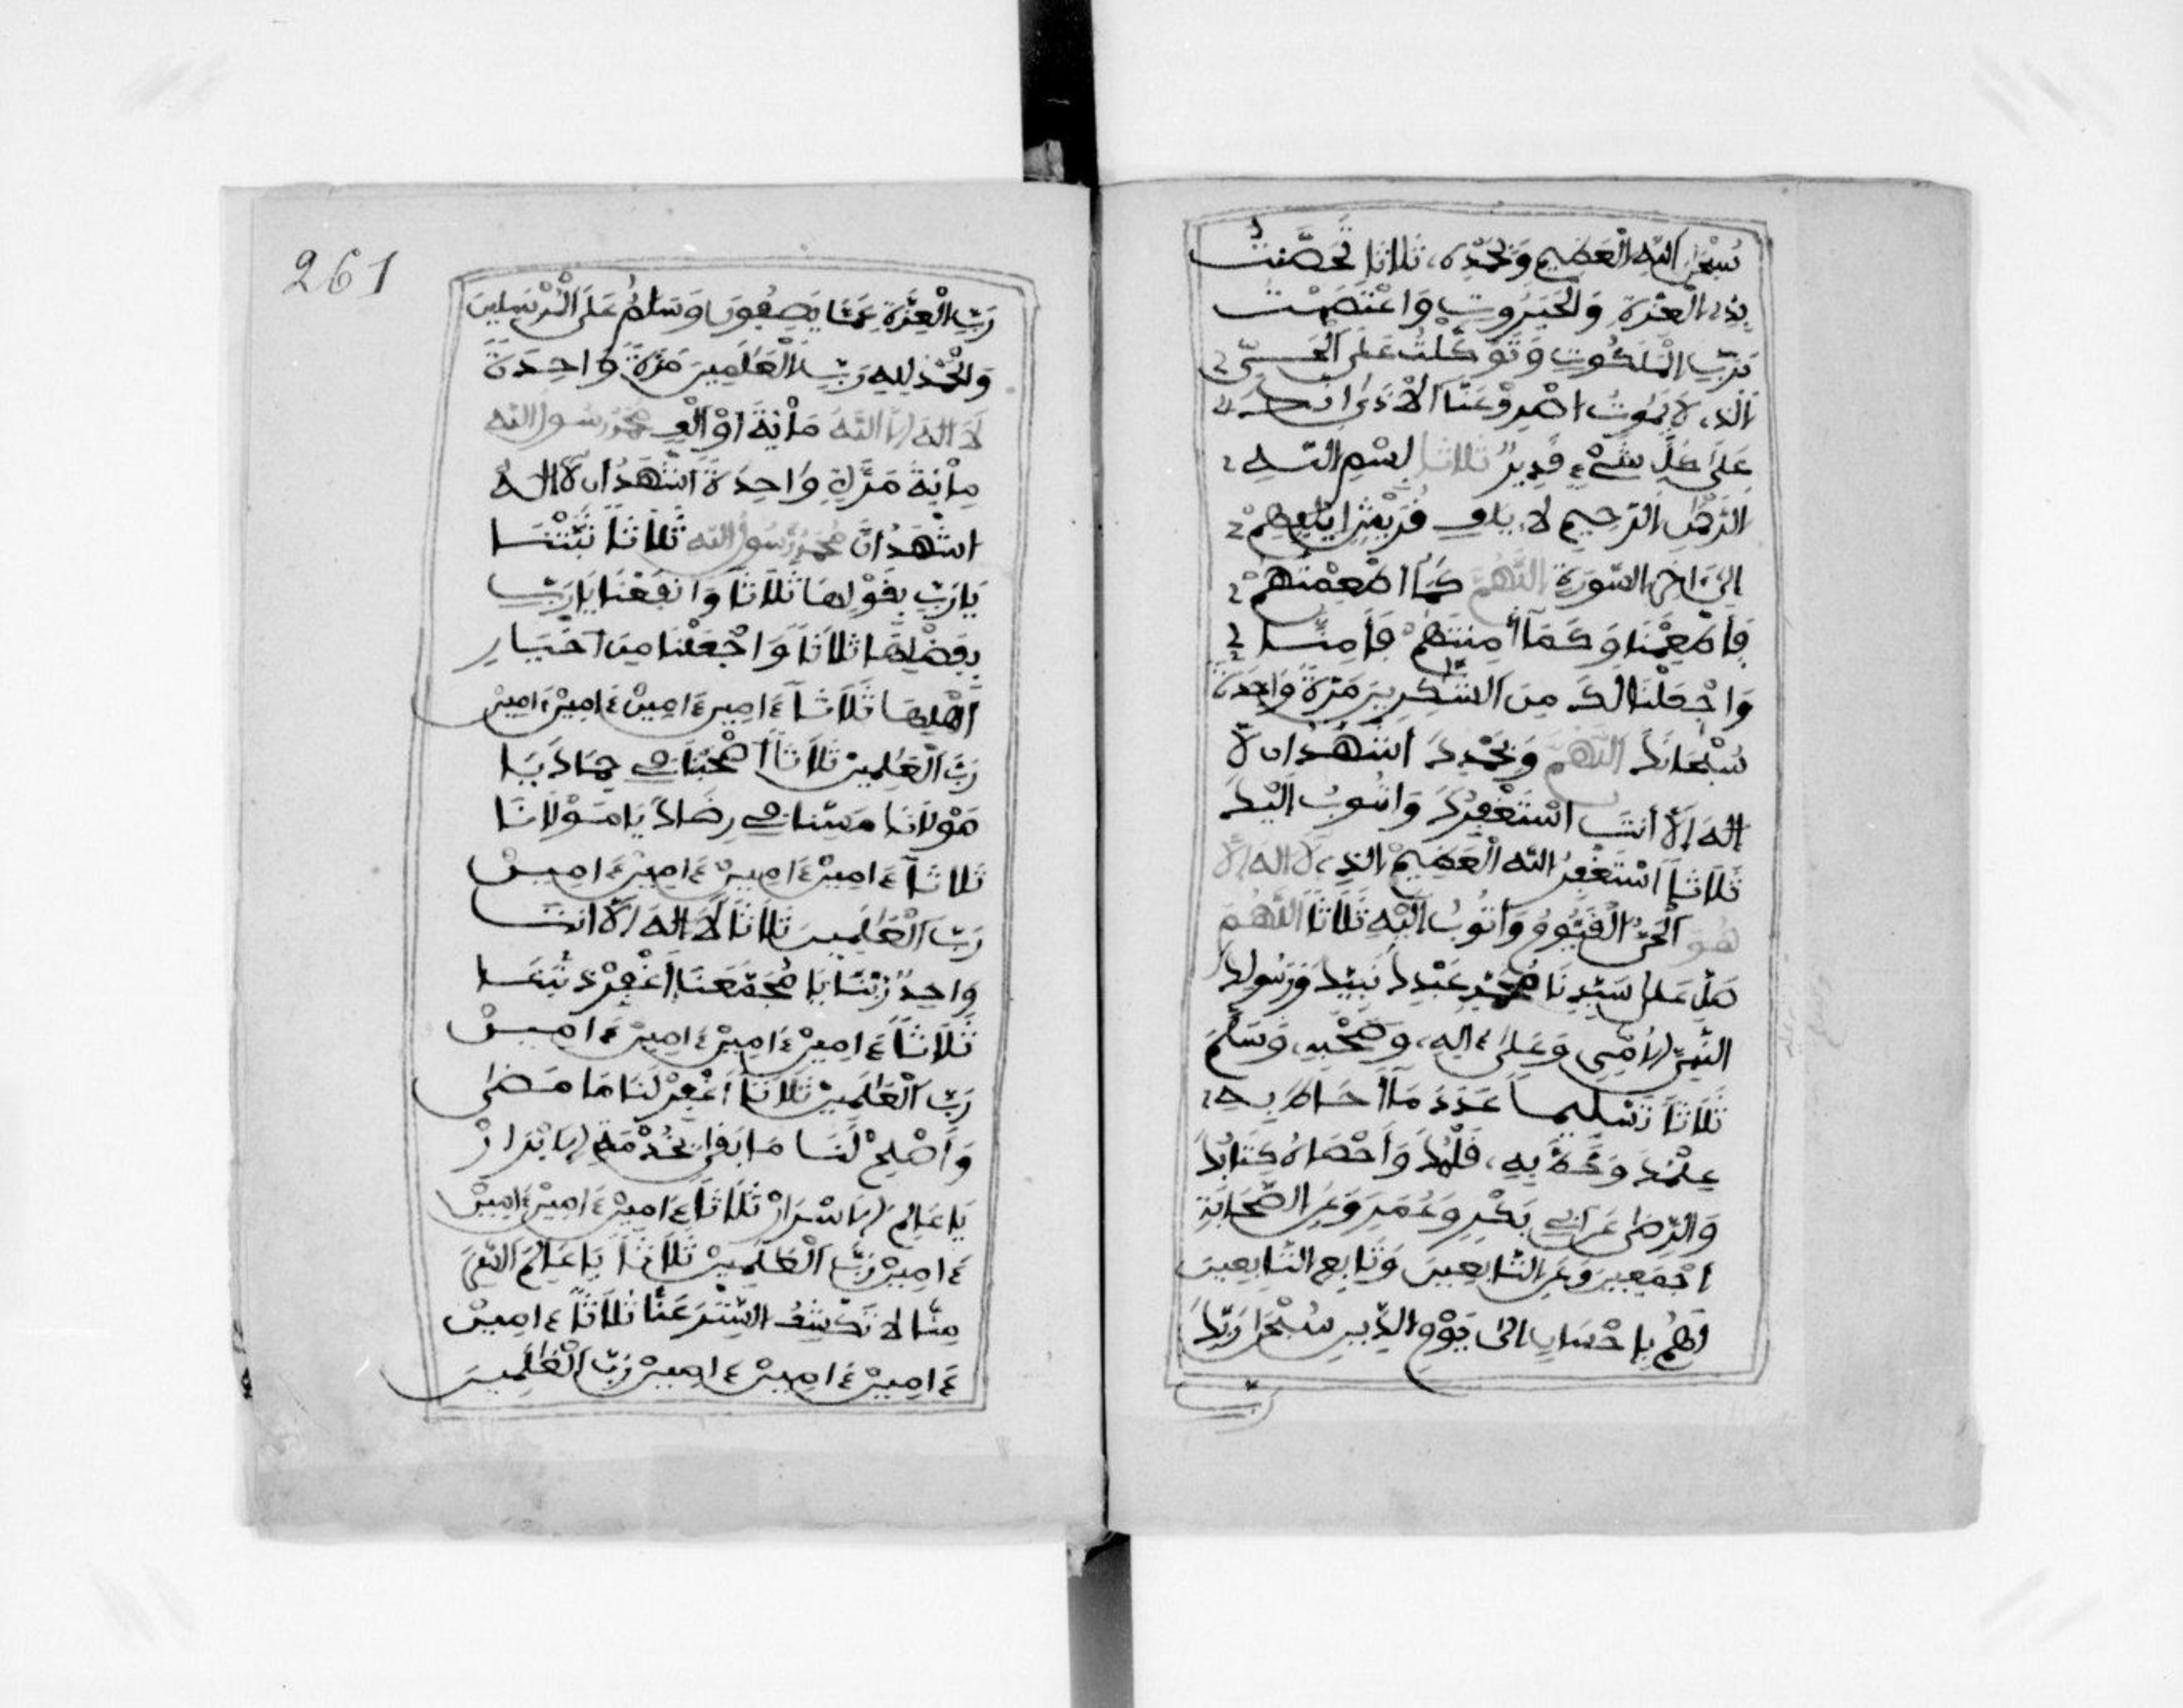 سُبْحٰنَ اللّٰهِ الْعَظِيمِ وَبِحَمْدِهِ، ثَلَاثًا تَحَصَّنْتُ
بِذِي الْعِزَّةِ وَالْجَبَرُوتِ وَاعْتَصَمْتُ
بِرَبِّ الْمَلَكُوتِ وَتَوَكَّلْتُ عَلَى الْحَيِّ
الَّذِي لَا يَمُوتُ اصْرِفْ عَنَّا الْأَذَى إِنَّكَ
عَلَى كُلِّ شَيْءٍ قَدِيرٌ ثَلَاثًا بِسْمِ اللّٰهِ
الرَّحْمٰنِ الرَّحِيمِ لِإِيلَافِ قُرَيْشٍ إِيلَافِهِمْ
إِلَى ءَاخِرِ السُّورَةِ اللَّهُمَّ كَمَا أَطْعَمْتَهُمْ
فَأَطْعِمْنَا وَكَمَا أَمِنْتَهُمْ فَأَمِنَّا
وَاجْعَلْنَا لَكَ مِنَ الشَّٰكِرِينَ مَرَّةً وَاحِدَةً
سُبْحَانَكَ اللَّهُمَّ وَبِحَمْدِكَ أَشْهَدُ أَن لَّا
إِلَهَ إِلَّا أَنتَ أَسْتَغْفِرُكَ وَأَتُوبُ إِلَيْكَ
ثَلَاثًا أَسْتَغْفِرُ اللّٰهَ الْعَظِيمَ الَّذِي لَا إِلَهَ إِلَّا
هُوَ الْحَيُّ الْقَيُّومُ وَأَتُوبُ إِلَيْهِ ثَلَاثًا اللَّهُمَّ
صَلِّ عَلَى سَيِّدِنَا مُحَمَّدٍ عَبْدِكَ نَبِيِّكَ وَرَسُولِكَ
النَّبِيِّ الْأُمِّيِّ وَعَلَى ءَالِهِ، وَصَحْبِهِ، وَسَلِّمْ
ثَلَاثًا تَسْلِيمًا عَدَدَ مَا أَحَاطَ بِهِ
عِلْمُكَ وَخَطَّ بِهِ، قَلَمُكَ وَأَحْصَاهُ كِتَابُكَ
وَالرِّضَى عَنْ أَبِي بَكْرٍ وَعُمَرَ وَعَنِ الصَّحَابَةِ
أَجْمَعِينَ وَعَنِ التَّابِعِينَ وَتَابِعِ التَّابِعِينَ
لَهُمْ بِإِحْسَانٍ إِلَى يَوْمِ الدِّينِ سُبْحٰنَ رَبِّكَ
رَبِّ
261
رَبِّ الْعِزَّةِ عَمَّا يَصِفُونَ وَسَلَٰمٌ عَلَى الْمُرْسَلِينَ
وَالْحَمْدُ لِلهِ رَبِّ الْعَٰلَمِينَ مَرَّةً وَاحِدَةً
لَا إِلَهَ إِلَّا اللّٰهُ مِائَةً أَوْ أَلْفٍ مُحَمَّدٌ رَسُولُ اللّٰهِ
مِائَةً مَرَّةً وَاحِدَةً أَشْهَدُ أَن لَا إِلَهَ
أَشْهَدُ أَنَّ مُحَمَّدًا رَسُولُ اللّٰهِ ثَلَاثًا ثَبِّتْنَا
يَا رَبِّ بِقَوْلِهَا ثَلَاثًا وَانْفَعْنَا يَا رَبِّ
بِفَضْلِهَا ثَلَاثًا وَاجْعَلْنَا مِنَ اخْيَارِ
أَهْلِهَا ثَلَاثًا ءَامِين ءَامِينْ ءَامِينْ ءَامِينْ
رَبَّ الْعَٰلَمِينْ ثَلَاثًا أَصْحِبْنَا فِي حِمَاكَ يَا
مَوْلَانَا مَتِّنَا فِي رِضَاكَ يَا مَوْلَانَا
ثَلَاثًا ءَامِينْ ءَامِينْ ءَامِينْ ءَامِينْ
رَبَّ الْعَٰلَمِينَ ثَلَاثًا لَا إِلَهَ إِلَّا أَنتَ
وَاحِدٌ رَبَّنَا يَا مُجَمِّعَنَا اغْفِرْ ذَنبَنَا
ثَلَاثًا ءَامِينْ ءَامِينْ ءَامِينْ ءَامِينْ
رَبَّ الْعَٰلَمِينْ ثَلَاثًا اغْفِرْ لَنَا مَا مَضَى
وَأَصْلِحْ لَنَا مَا بَقَى بِحُرْمَةِ الْأَبْرَارْ
يَا عَالِمَ الْأَسْرَارْ ثَلَاثًا ءَامِينْ ءَامِينْ ءَامِينْ
ءَامِينْ رَبَّ الْعَٰلَمِينْ ثَلَاثًا يَا عَالِمَ السِّرِّ
مِنَّا لَا تَكْشِفِ السِّتْرَ عَنَّا ثَلَاثًا ءَامِينْ
ءَامِينْ ءَامِينْ ءَامِينْ رَبَّ الْعَٰلَمِينَ